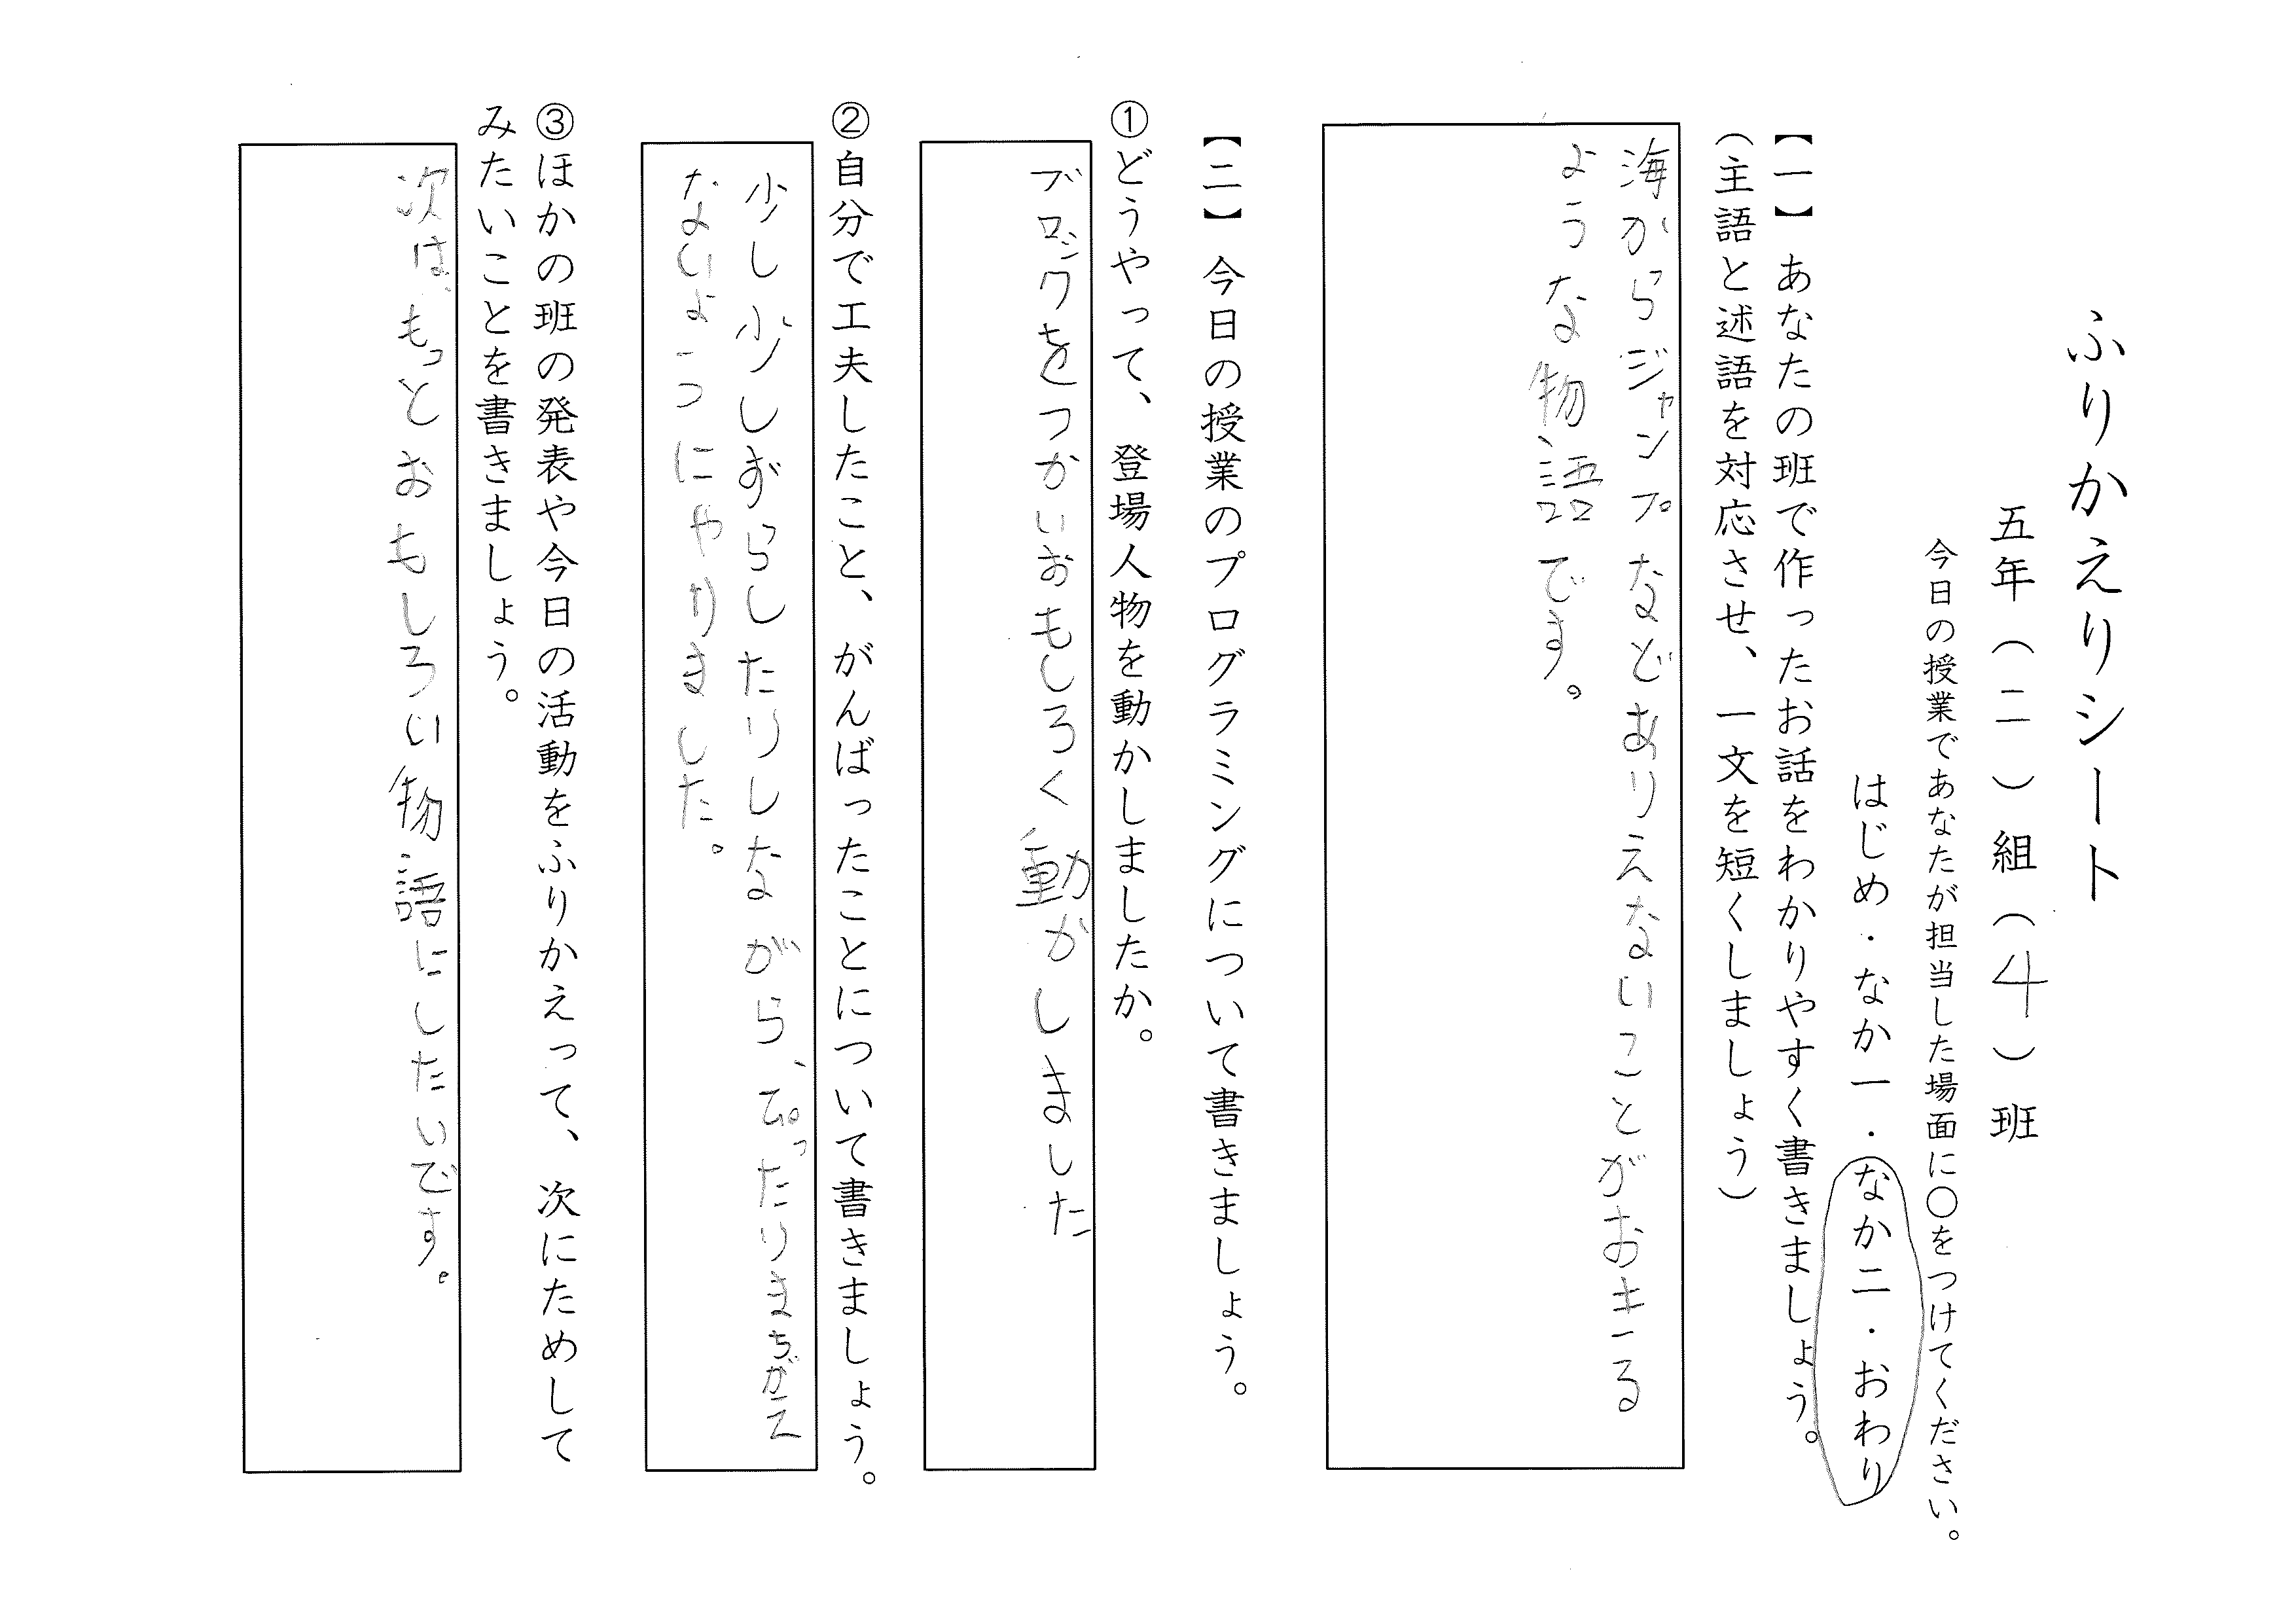 ふりかえりシート
五年（二）組（４）班
今日の授業であなたが担当した場面に〇をつけてください。
はじめ・なか一・なか二・おわり
【一】あなたの班で作ったお話をわかりやすく書きましょう。
（主語と述語を対応させ、一文を短くしましょう）
海からジャンプなどありえないことがおきる
ような物語です。
【二】今日の授業のプログラミングについて書きましょう。
①どうやって、登場人物を動かしましたか。
ブロックをつかいおもしろく動かしました
②自分で工夫したこと、がんばったことについて書きましょう。
少し少しずらしたりしながら、ぴったりまちがえ
ないよにやりました。
③ほかの班の発表や今日の活動をふりかえって、次にためして
みたいことを書きましょう。
次は、もっとおもしろい物語にしたいです。